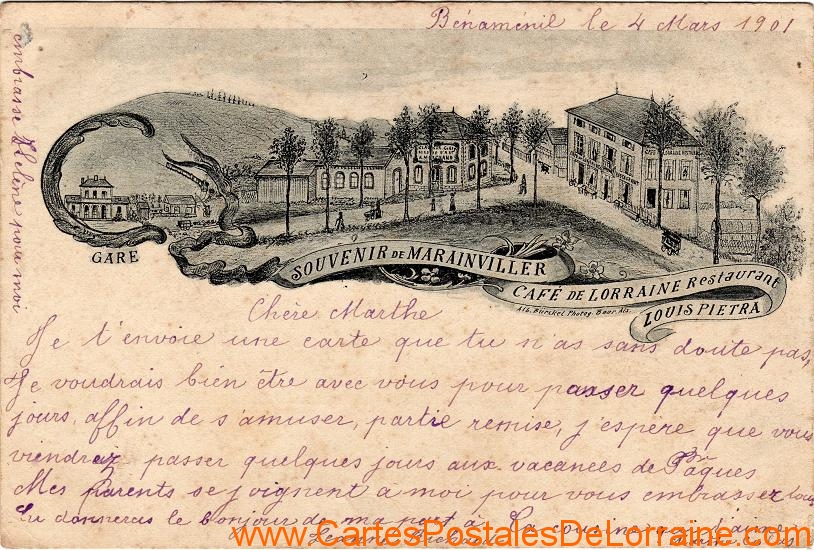 Bénaménil le 4 Mars 1901
embrasse Hélène pour moi
GARE
SOUVENIR DE MARAINVILLER
CAFÉ DE LORRAINE Restaurant
LOUIS PIETRA
Chère Marthe
Je t'envoie une carte que tu n'as sans doute pas,
Je voudrais bien être avec vous pour passer quelques
jours, affin de s'amuser, partie remise, j'espère que vous
viendrez passer quelques jours aux vacances de Pâques
Mes parents se joignent à moi pour vous embrasser tous
tu donneras le bonjour de ma part à La cousine qui t'aime
www.CartesPostalesDeLorraine.com